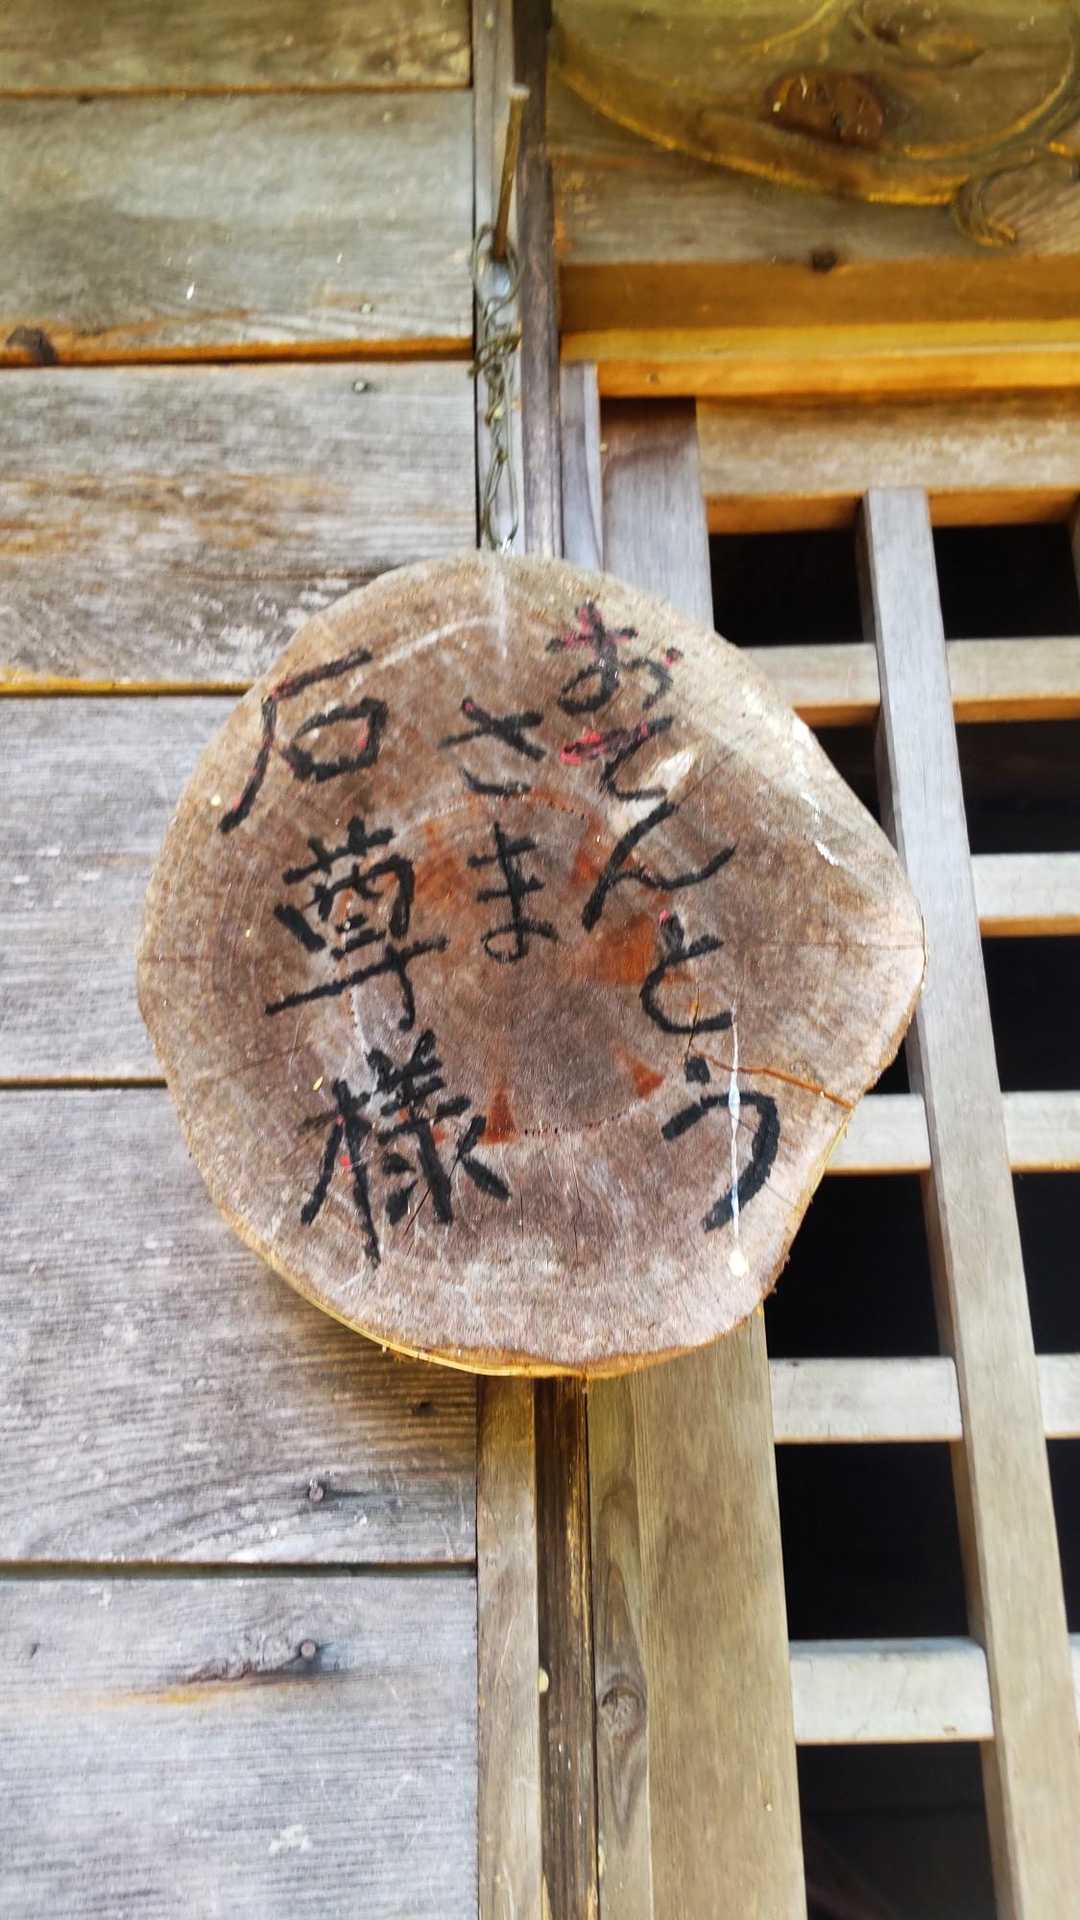 おてんとう
さま
石尊様